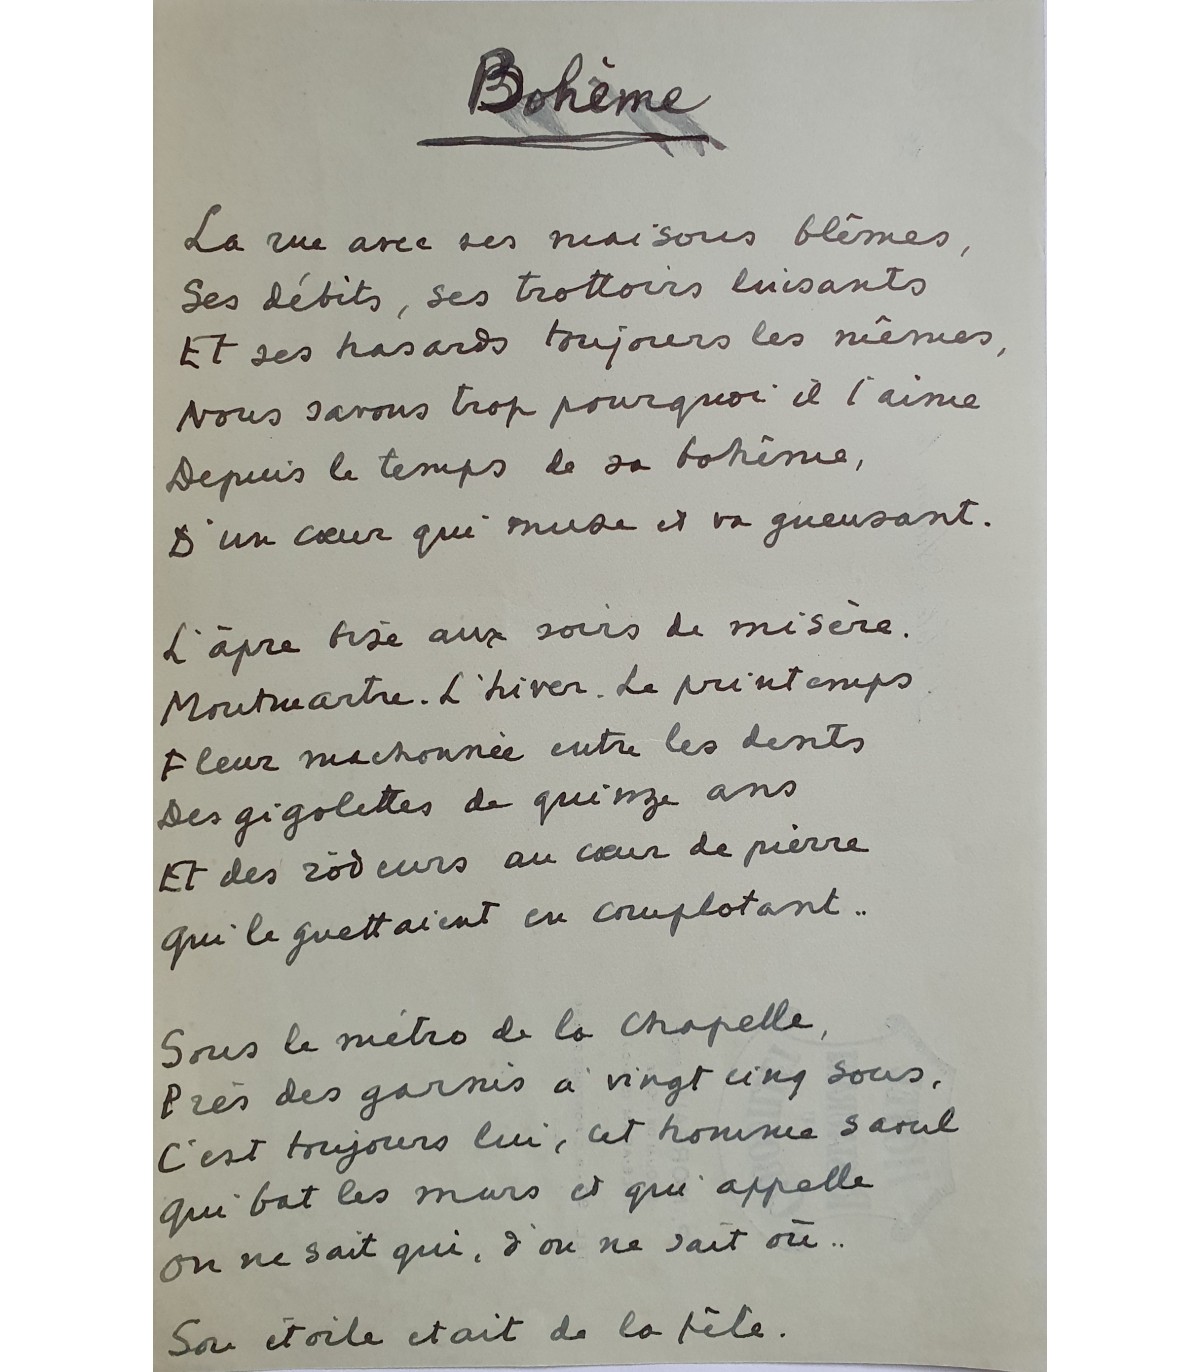 Bohème
La rue avec ses maisons blêmes,
Ses débits, ses trottoirs luisants
Et ses hasards toujours les mêmes,
Nous savons trop pourquoi il l'aime
Depuis le temps de sa bohême,
D'un cœur qui muse et va gueusant.
L'âpre bise aux soirs de misère.
Montmartre. L'hiver. Le printemps
Fleur machonnée entre les dents
Des gigolettes de quinze ans
Et des rôdeurs au cœur de pierre
Qui le guettaient en complotant..
Sous le métro de la Chapelle,
Près des garnis à vingt cinq sous,
C'est toujours lui, cet homme saoul
Qui bat les murs et qui appelle
On ne sait qui, d'on ne sait où..
Son étoile etait de la fête.